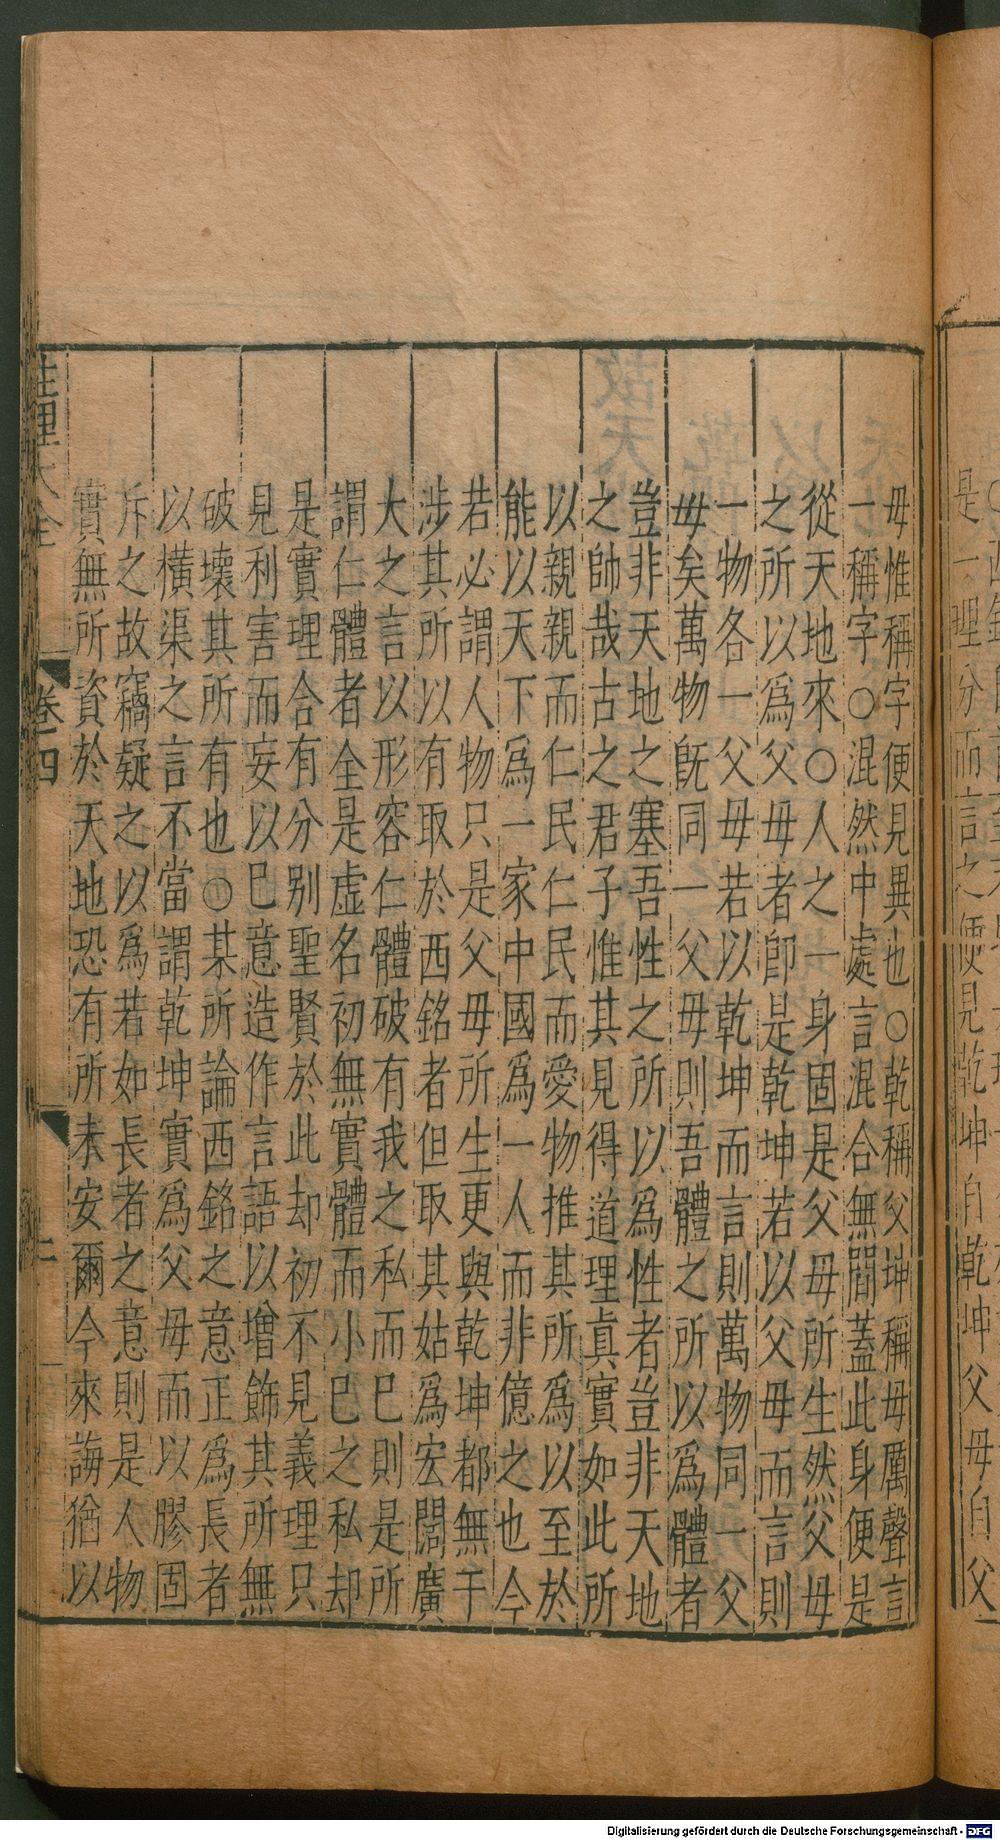 母惟稱字便見異也○乾稱父坤稱母厲聲言
一稱字○混然中處言混合無間蓋此身便是
從天地來○人之一身固是父母所生然父母
之所以爲父母者卽是乾坤若以父母而言則
一物各一父母若以乾坤而言則萬物同一父
母矣萬物旣同一父母則吾體之所以爲體者
豈非天地之塞吾性之所以爲性者豈非天地
之帥哉古之君子惟其見得道理眞實如此所
以親親而仁民仁民而愛物推其所爲以至於
能以天下爲一家中國爲一人而非億之也今
若必謂人物只是父母所生更與乾坤都無干
涉其所以有取於西銘者但取其姑爲宏闊廣
大之言以形容仁體破有我之私而巳則是所
謂仁體者全是虛名初無實體而小巳之私却
是實理合有分别聖賢於此却初不見義理只
見利害而妄以巳意造作言語以增飾其所無
破壞其所有也○某所論西銘之意正爲長者
以橫渠之言不當謂乾坤實爲父母而以膠固
斥之故竊疑之以爲若如長者之意則是人物
實無所資於天地恐有所未安爾今來誨猶以
性理大全 卷四 二
是一理分而言之便見乾坤自乾坤父母自父